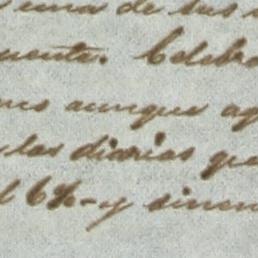 una de sus
cuenta. Celebr
mo aunque ag
las diarias que
l 6%- y sinen